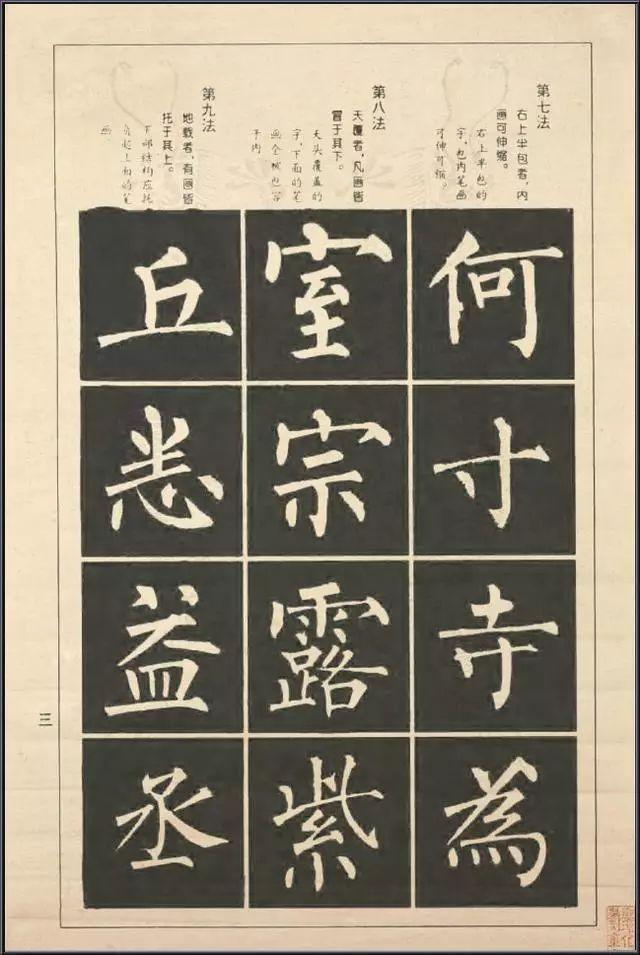 第七法
右上半包者，内
画可伸缩。
右上半包的
字，包内笔画
可伸可缩。
何
寸
寺
為
第八法
天覆者，凡画皆
冒于其下。
天头覆盖的
字，下面的笔
画全被包容
于内
室
宗
露
紫
第九法
地载者，有画皆
托于其上。
下部结构应托
负起上面的笔
画
丘
益
丞
三